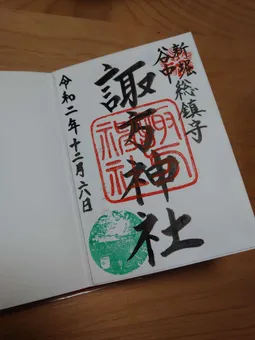 新堀
谷中
総鎮守
諏方神社
令和二年十二月六日
諏方神社